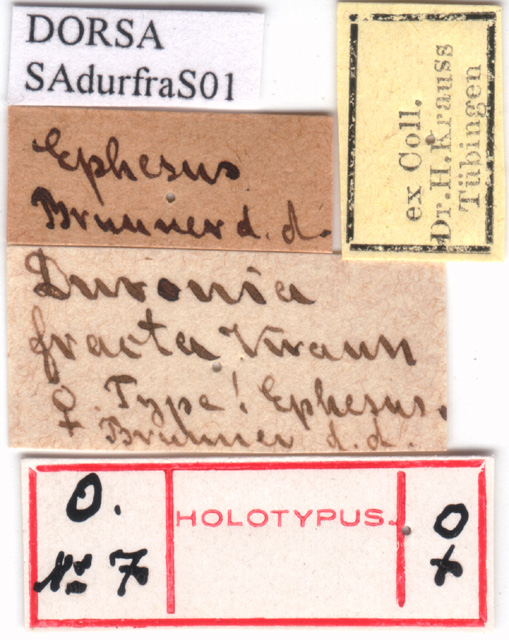 DORSA
SAdurfraS01
ex Coll.
Dr. H. Krauss
Tübingen
Ephesus
Brunner d. d.
Duronia
fracta Krauss
♀. Type! Ephesus.
Brunner d. d.
O.
No 7
HOLOTYPUS.
♀